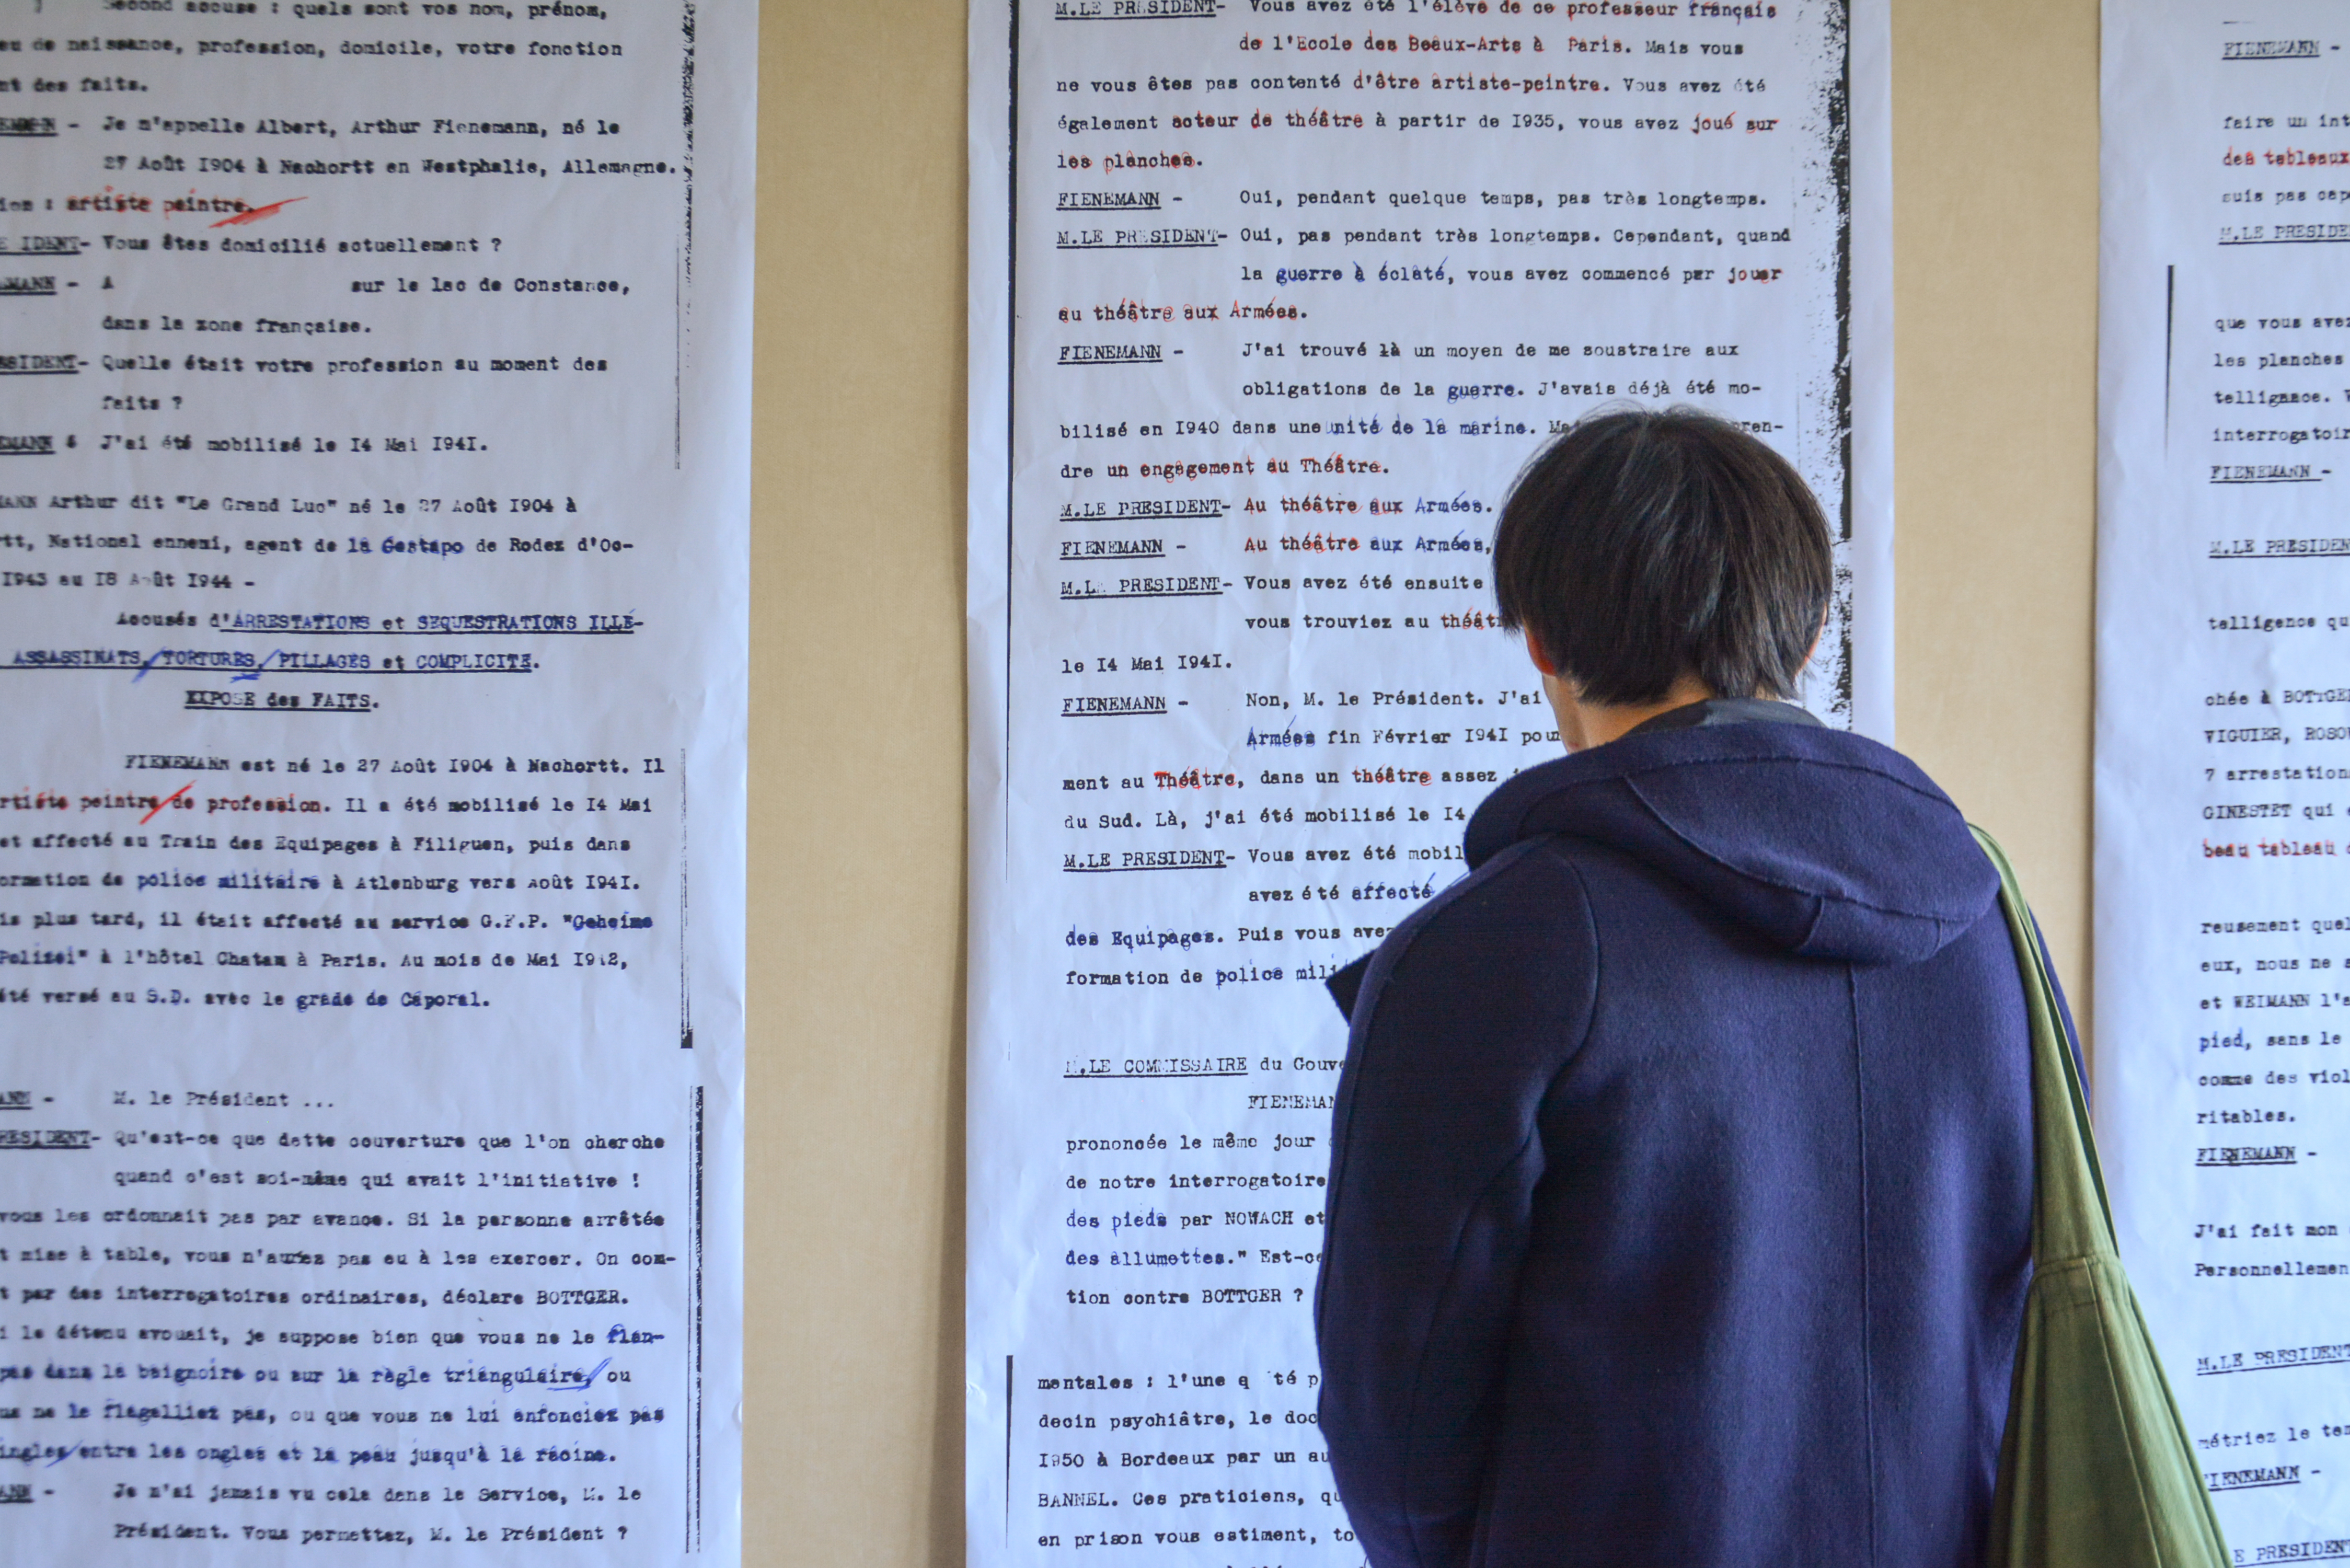 Second accuse : quels sont vos nom, prénom,
eu de naissance, profession, domicile, votre fonction
nt des faits.
EMANN - Je m'appelle Albert, Arthur Fienemann, né le
27 Août I904 à Nachortt en Westphalie, Allemagne.
ion : artiste peintre.
E IDENT- Vous êtes domicilié actuellement ?
EMANN - A sur le lac de Constance,
dans la zone française.
ESIDENT- Quelle était votre profession au moment des
faits ?
EMANN & J'ai été mobilisé le I4 Mai I94I.
MANN Arthur dit "Le Grand Luc" né le 27 Août I904 à
rtt, National ennemi, agent de la Gestapo de Rodez d'Oc-
I943 au I8 Août I944 -
Accusés d'ARRESTATIONS et SEQUESTRATIONS ILLÉ-
ASSASSINATS, TORTURES, PILLAGES et COMPLICITE.
EXPOSE des FAITS.
FIENEMANN est né le 27 Août I904 à Nachortt. Il
rtiste peintre de profession. Il a été mobilisé le I4 Mai
et affecté au Train des Equipages à Filiguen, puis dans
ormation de police militaire à Atlenburg vers Août I94I.
is plus tard, il était affecté au service G.F.P. "Geheime
Polizei" à l'hôtel Chatam à Paris. Au mois de Mai I942,
été versé au S.D. avec le grade de Caporal.
ANN - M. le Président ...
RESIDENT- Qu'est-ce que dette couverture que l'on cherche
quand c'est soi-même qui avait l'initiative !
vous les ordonnait pas par avance. Si la personne arrêtée
t mise à table, vous n'auriez pas eu à les exercer. On com-
t par des interrogatoires ordinaires, déclare BOTTGER.
i le détenu avouait, je suppose bien que vous ne le flan-
pas dans la baignoire ou sur la règle triangulaire, ou
us ne le flagelliez pas, ou que vous ne lui enfonciez pas
ingles entre les ongles et la peau jusqu'à la racine.
ANN - Je n'ai jamais vu cela dans le Service, M. le
Président. Vous permettez, M. le Président ?
M.LE PRESIDENT- Vous avez été l'élève de ce professeur français
de l'Ecole des Beaux-Arts à Paris. Mais vous
ne vous êtes pas contenté d'être artiste-peintre. Vous avez été
également acteur de théâtre à partir de I935, vous avez joué sur
les planches.
FIENEMANN - Oui, pendant quelque temps, pas très longtemps.
M.LE PRESIDENT- Oui, pas pendant très longtemps. Cependant, quand
la guerre à éclaté, vous avez commencé par jouer
au théâtre aux Armées.
FIENEMANN - J'ai trouvé là un moyen de me soustraire aux
obligations de la guerre. J'avais déjà été mo-
bilisé en I940 dans une unité de la marine. Ma pren-
dre un engagement au Théâtre.
M.LE PRESIDENT- Au théâtre aux Armées.
FIENEMANN - Au théâtre aux Armées,
M.LE PRESIDENT- Vous avez été ensuite
vous trouviez au théât
le I4 Mai I94I.
FIENEMANN - Non, M. le Président. J'ai
Armées fin Février I94I pour
ment au Théâtre, dans un théâtre assez
du Sud. Là, j'ai été mobilisé le I4
M.LE PRESIDENT- Vous avez été mobil
avez été affecté
des Equipages. Puis vous avez
formation de police mili
M.LE COMMISSAIRE du Gouve
FIENEMAN
prononcée le même jour
de notre interrogatoire
des pieds par NOWACH et
des allumettes." Est-ce
tion contre BOTTGER ?
mentales : l'une q té p
decin psychiâtre, le doc
I950 à Bordeaux par un au
BANNEL. Ces praticiens, qu
en prison vous estiment, to
FIENEMANN -
faire un int
des tableaux
suis pas cap
M.LE PRESIDE
que vous avez
les planches
telligence. V
interrogatoir
FIENEMANN -
M.LE PRESIDEN
telligence qu
chée à BOTTGE
VIGUIER, ROSO
7 arrestation
GINESTET qui
beau tableau
reusement quel
eux, nous ne s
et WEIMANN l'a
pied, sans le
comme des viol
ritables.
FIENEMANN -
J'ai fait mon
Personnellemen
M.LE PRESIDENT
métriez le ter
FIENEMANN -
E PRESIDEN